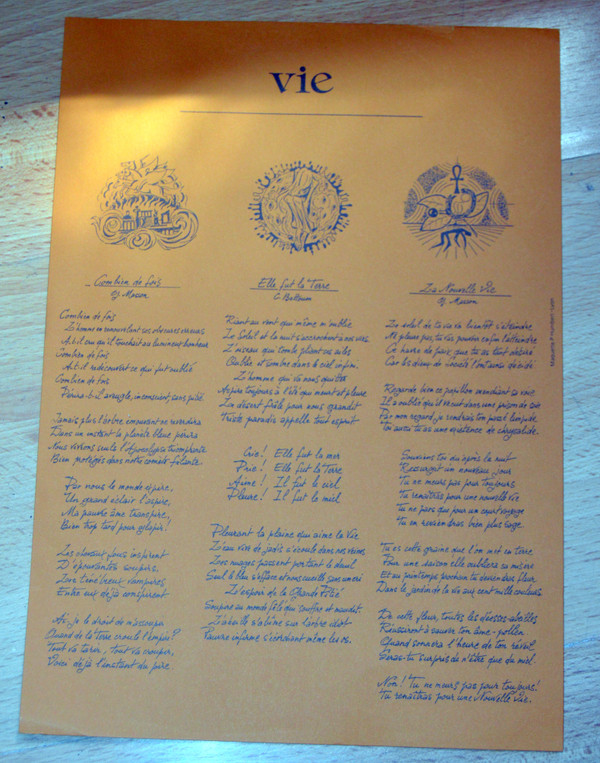 vie
Combien de fois
G. Masson
Combien de fois
L'homme en renouvelant ses obscures erreurs
A-t-il cru qu'il touchait au lumineux bonheur
Combien de fois
A-t-il redécouvert ce qui fut oublié
Combien de fois
Périra-t-il aveuglé, inconscient, sans pitié
Jamais plus l'arbre, impuissant ne verdira
Dans un instant la planète bleue périra
Nous vivrons seuls l'Apocalypse triomphante
Bien protégés dans notre comète filante
Par nous le monde expire,
Un grand éclair l'aspire,
Ma pauvre âme transpire,
Bien trop tard pour
Les pensant fous inspirent
D'épouvantes soupirs,
Leurs ténébreux vampires
Entre eux déjà conspirent
Ai-je le droit de m'assoupir
Quand de la Terre croule l'empire?
Tout va tarir, Tout va croupir,
Voici déjà l'instant du pire
Elle fut la Terre
Riant au vent qui même m'oublie
Le Soleil et la nuit s'accrochent à nos vies
L'oiseau qui tombe pliant ses ailes
Oublie et sombre dans le ciel infini.
L'homme qui va nous quitter
Aspire toujours à l'été qui meurt et pleure
Le désert frêle pour nous grandit
Triste paradis appelle tout esprit
Crie! Elle fut la mer
Prie! Elle fut la Terre
Aime! Il fut le ciel
Pleure! Il fut le miel
Pleurant la plaine qui aime la Vie
L'eau vive de jadis s'écoule dans nos veines
Les nuages passent portant le deuil
Seul le bleu s'efface et nous cueille sans un cri
L'espoir de la Grande Cité
Soupire au monde fêlé qui souffre et maudit.
L'abeille s'abîme sur l'arbre
Pauvre infirme s'écorchant même les os.
La Nouvelle Vie
G. Masson
Le soleil de ta vie va bientôt s'éteindre
Ne pleure pas, tu vas pouvoir enfin l'atteindre
Ce havre de paix que tu as tant désiré
Car les dieux de là-
Regarde bien ce papillon
Il a oublié qu'il vécut dans une prison de soie
Par mon regard, je rendrais ton passé limpide
Toi aussi tu as une existence de chrysalide.
Souviens toi qu'après la nuit
Ressurgit un nouveau jour
Tu ne meurs pas pour toujours
Tu renaîtras pour une nouvelle vie
Tu ne pars que pour un court voyage
Tu en reviendras bien plus sage.
Tu es cette graine que l'on met en terre
Pour une saison elle oubliera sa misère
Et au printemps prochain tu deviendras fleur
Dans le jardin de la vie aux cent mille couleurs.
De cette fleur, toutes les déesses-abeilles
Réussiront à sauver ton âme-pollen
Quand sonnera l'heure de ton réveil
Seras-tu surpris de n'être que du miel.
Non! Tu ne meurs pas pour toujours!
Tu renaîtras pour une Nouvelle Vie.